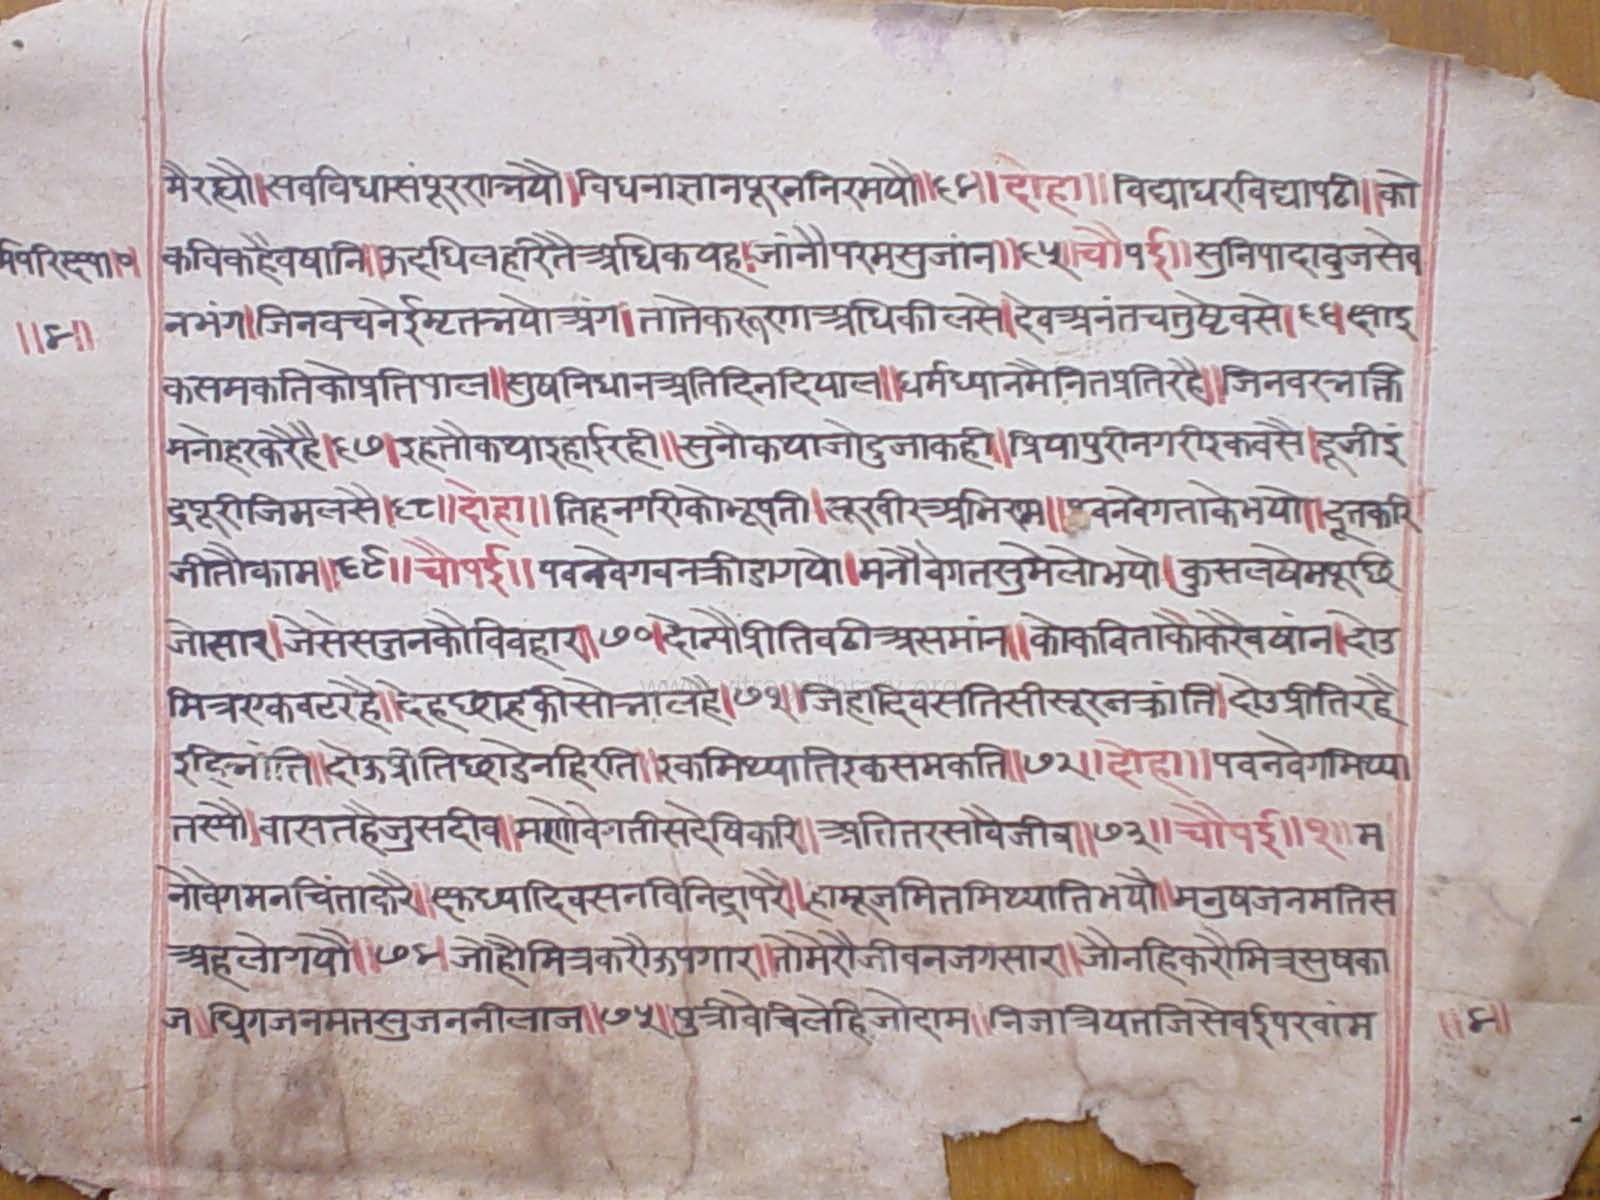 मैरह्यौ।सवविधासंपूरराान्नयौ।विधनाज्ञानपूरननिरमयौ॥६४॥दोहा॥विद्याधरविद्यापढी॥को
र्मपरिक्ष्या॰१ कविकहैवषानि॥ऊदधिलहरितैअधिकयह।जांनौपरमसुजांन॥६५॥चौपई॥सुनिपादावुजसेव
॥४॥ नभंग।जिनवचनेईमृतन्नयोअंग।तातैकरूणाअधिकीलसे।देवअनंतचतुष्टेवसे।६६।क्षाइ
कसमकतिकोप्रतिपाल॥सुषनिधानअतिदिनदियाल॥धर्मध्यानमैनितप्रतिरहै॥जिनवरन्नक्ति
मनोहरकरैहै।६७।इहतौकथाइहाईरही॥सुनौकथाजोदुजाकही॥प्रियापुरीनगरीइकवसै।दूजीइं
द्रपूरीजिमलसै।६८॥दोहा॥तिहनगरीकोभूपती।सूरवीरअभिराम॥पवनवेगताकेभयो॥दूतकरि
जीतौकाम॥६९॥चौपई॥पवनवेगवनक्रीडागयो।मनौवेगतसुमेलोभयो।कुसलषेमपूछि
जोसार।जेसेसजनकौविवंहार॥७०।दोन्यौप्रीतिवढीअसमांन॥कोकविताकौकरैवषांन।दोउ
मित्रएकवटरहै॥देहछाहकीसोन्नालहै।७१।जिहादिवसतिसीसूरजक्रांति।दोउप्रीतिरहै
इहिन्नांति॥दोऊप्रीतिछाडेनहिरति॥इकमिथ्यातिइकसमकति॥७२॥दोहा॥पवनवेगमिथ्या
तस्यौ।वासतहैजुसदीव॥मनौवेगतीसदेषिकरि॥अतितरसावैजीव॥७३॥चौपई॥१॥म
नौवेगमनचिंताकरै॥ध्यादिवसनविनिद्रापरै॥हामूजमितमिथ्यातिभयौ॥मनुषजनमतिस
अहलोगयौ॥७४।जोहौमित्रकरौऊपगार॥तोमेरौजीवनजगसार॥जौनहिकरौमित्रसुषका
ज॥ध्रिगजनमतसुजननीलाज॥७५॥पुत्रीवेचिलेहिजोदाम॥निजत्रियतजिसेवईपरवांम
॥४॥